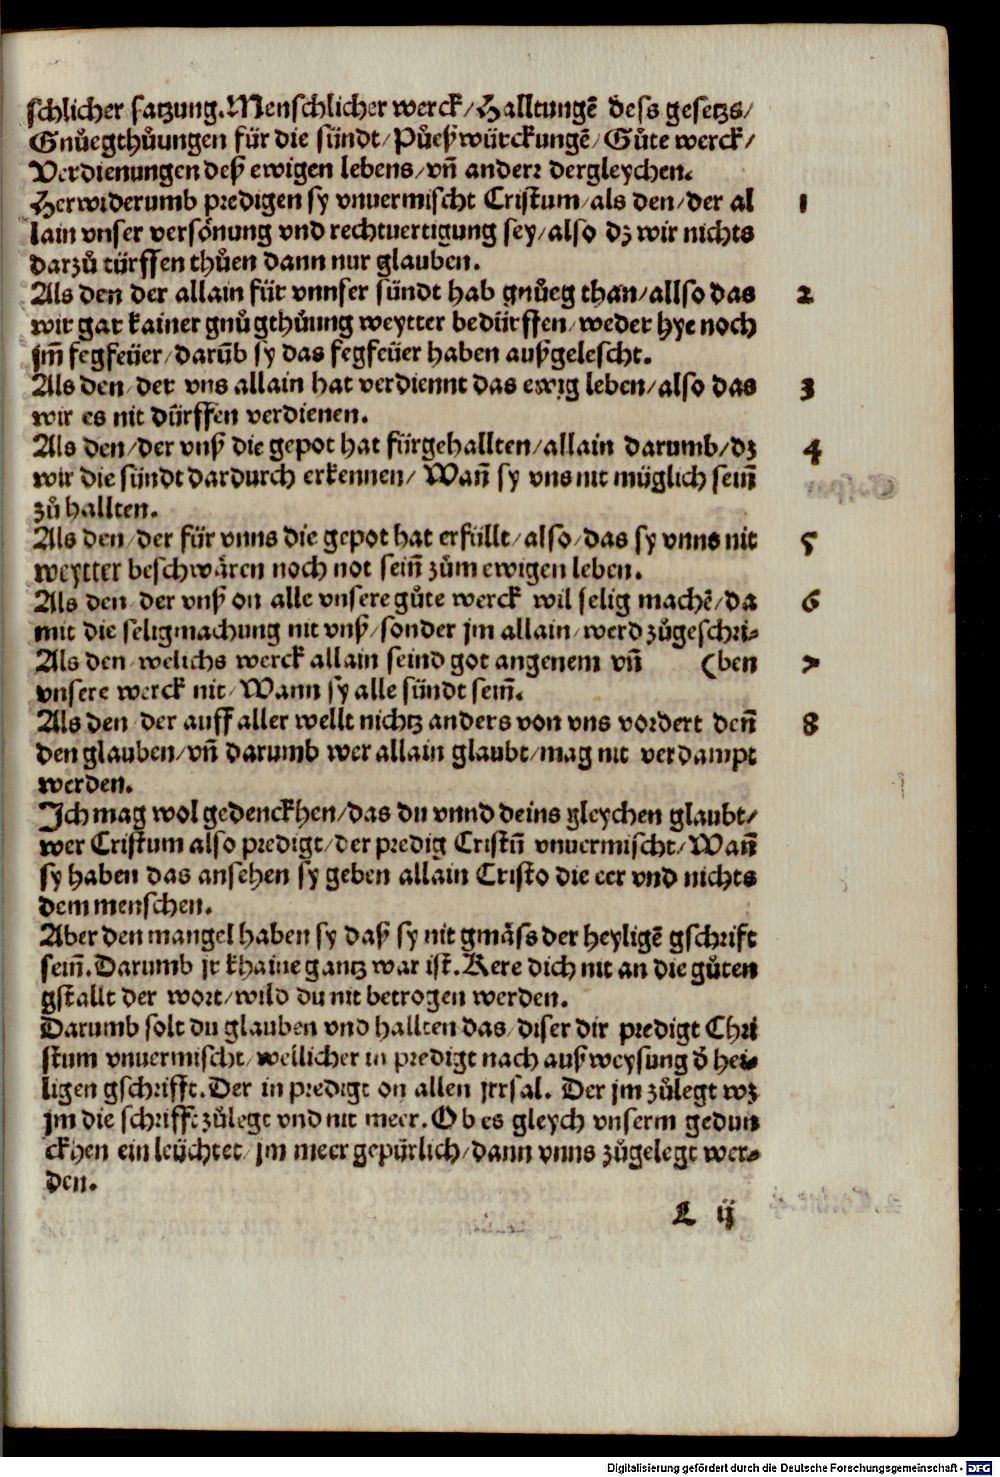 schlicher satzung. Menschlicher werck/ Halltungē dess gesetzs/
Gnůegthůungen für die sündt/ Půeßwürckungē/ Gůte werck/
Verdienungen deß ewigen lebens/ vn̄ anderr dergleychen.
Herwiderumb predigen sy vnuermischt Cristum/ als den/ der al 1
lain vnser versönung vnd rechtuertigung sey/ also dz wir nichts
darzů türffen thůen dann nur glauben.
Als den der allain für vnnser sündt hab gnůeg than/ allso das 2
wir gar kainer gnůgthůung weytter bedürffen/ weder hye noch
jm̄ fegfeüer/ darūb sy das fegfeüer haben außgelescht.
Als den/ der vns allain hat verdiennt das ewig leben/ also das 3
wir es nit dürffen verdienen.
Als den/ der vnß die gepot hat fürgehallten/ allain darumb/ dz 4
wir die sündt dardurch erkennen/ Wan̄ sy vns nit müglich sein̄
zů hallten.
Als den/ der für vnns die gepot hat erfüllt/ also/ das sy vnns nit 5
weytter beschwären noch not sein̄ zům ewigen leben.
Als den der vnß on alle vnsere gůte werck wil selig machē/ da 6
mit die seligmachung nit vnß/ sonder jm allain/ werd zůgeschri-
Als den/ welichs werck allain seind got angenem vn̄ (ben 7
vnsere werck nit/ Wann sy alle sündt sein̄.
Als den der auff aller wellt nichtz anders von vns vordert den̄ 8
den glauben/ vn̄ darumb wer allain glaubt/ mag nit verdampt
werden.
Ich mag wol gedenckhen/ das du vnnd deins gleychen glaubt/
wer Cristum also predigt/ der predig Cristū vnuermischt/ Wan̄
sy haben das ansehen sy geben allain Cristo die eer vnd nichts
dem menschen.
Aber den mangel haben sy daß sy nit gmäss der heyligē gschrift
sein̄. Darumb jr khaine gantz war ist. Kere dich nit an die gůten
gstallt der wort/ wild du nit betrogen werden.
Darumb solt du glauben vnd hallten das/ diser dir predigt Chri
stum vnuermischt/ wellicher in predigt nach außweysung d̄ hei-
ligen gschrifft. Der in predigt on allen jrrsal. Der jm zůlegt wz
jm die schrifft zůlegt vnd nit meer. Ob es gleych vnserm gedun
ckhen ein leüchtet/ jm meer gepürlich/ dann vnns zůgelegt wer-
den.
L ij
Digitalisierung gefördert durch die Deutsche Forschungsgemeinschaft - DFG